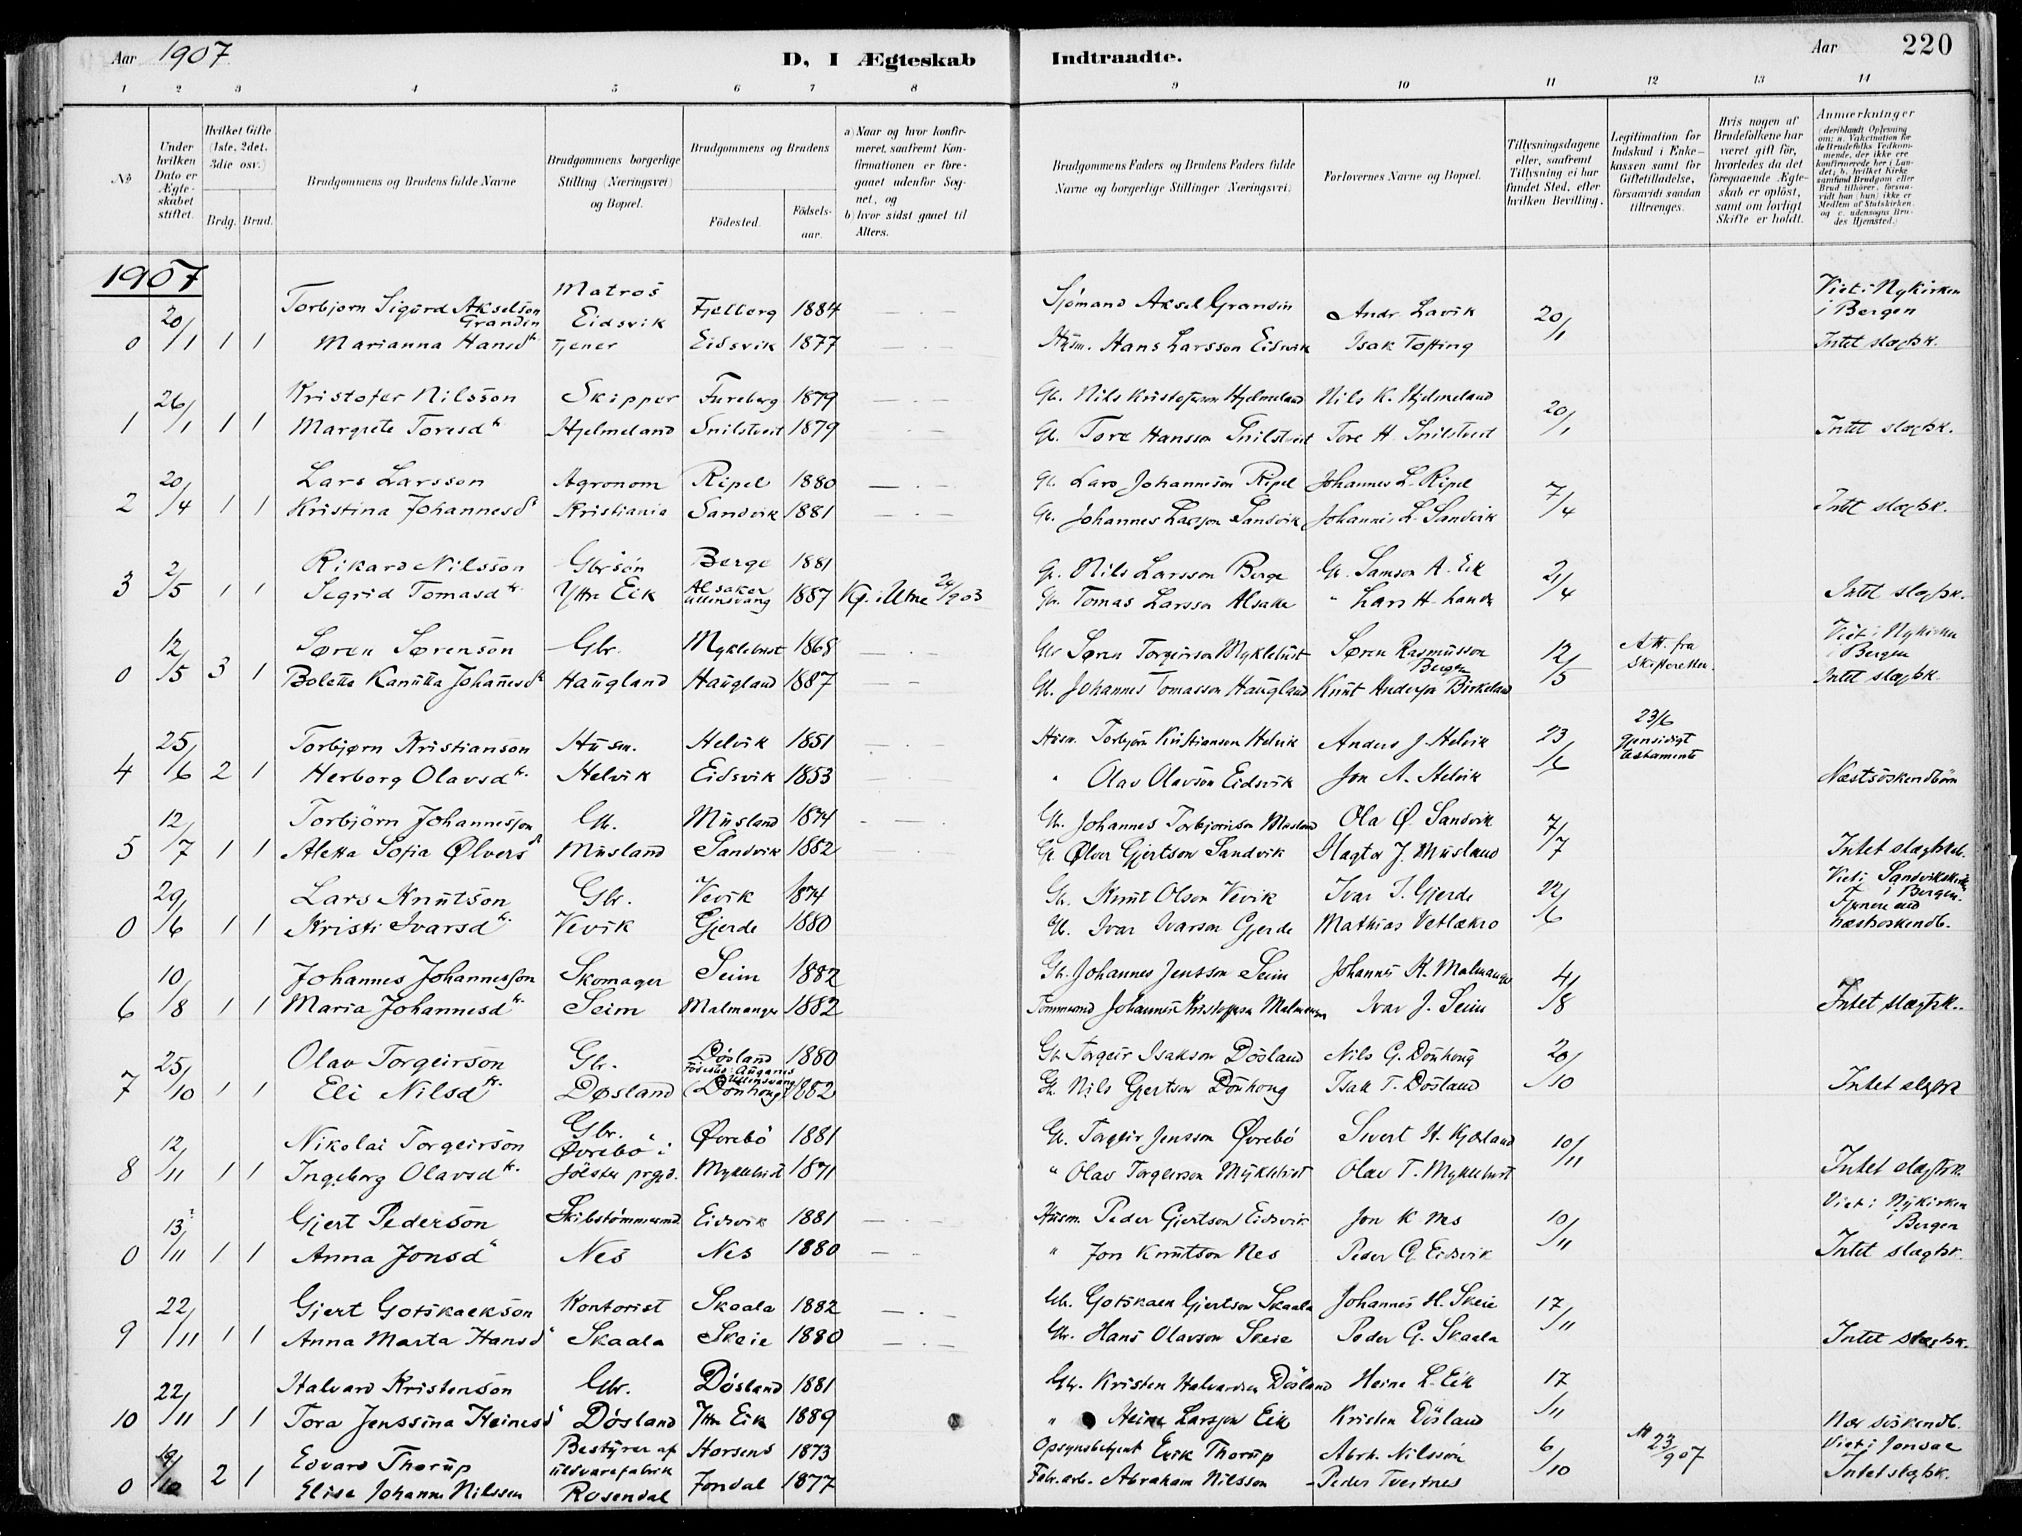 Aar 1907 D, I Ægteskab Indtraadte. Aar 220
1 2 3 4 5 6 7 8 9 10 11 12 13 14
No
Under hvilken Dato er Ægteskabet stiftet.
Hvilket Gifte (1ste, 2det, 3die osv.)
Brdg. Brud.
Brudgommens og Brudens fulde Navne
Brudgommens borgerlige Stilling (Næringsvei) og Bopæl.
Brudgommens og Brudens
Födested. Födselsaar.
a) Naar og hvor konfirmeret, saafremt Konfirmationen er foregaaet udenfor Sognet, og
b) hvor sidst gaaet til Alters.
Brudgommens Faders og Brudens Faders fulde Navne og borgerlige Stillinger (Næringsvei)
Forlovernes Navne og Bopæl.
Tillysningsdagene eller, saafremt Tillysning ei har fundet Sted, efter hvilken Bevilling.
Legitimation for Indskud i Enkekassen samt for Giftetilladelse, forsaavidt saadan tiltrænges.
Hvis nogen af Brudefolkene har været gift för, hvorledes da det foregaaende Ægteskab er oplöst, samt om lovligt Skifte er holdt.
Anmærkninger
1907
Torbjorn Sigurd Akselson Grandin Matros Fjelberg 1884 — . — Sjömand Aksel Grandin Andr. Lavik 20/1 Viet i Nykirken i Bergen
0 20/1 1 1 Marianna Hansd tr. Eidsvik Tjener Eidsvik 1877 Husm. Hans Larsson Eidsvik Isak Tofting Intet slægsk.
Kristofer Nilsson Skipper Fureberg 1879 — . — Gb. Nils Kristoferson Hjelmeland Nils K. Hjelmeland 20/1
1 26/1 1 1 Margrete Toresd tr. Hjelmeland Snilstveit 1879 Gb. Tore Hansson Snilstveit Tore H. Snilstveit Intet slægsk.
Lars Larsson Agronom Ripel 1880 — . — Gb. Lars Johanneson Ripel Johannes L. Ripel 7/4
2 20/4 1 1 Kristina Johannesd Kristiania Sandvik 1881 — . — Gb. Johannes Larsson Sandvik Johannes L. Sandvik Intet slægsk.
Rikard Nilsson Gbrsön Berge 1881 Gb. Nils Larsson Berge Gb. Samson A. Eik 21/4
3 2/5 1 1 Segrid Tomasd tr. Yttre Eik Alsaker Ullensvang 1887 Kg. i Utne Gb. Tomas Larsson Alsaker " Lars H. Intet slægsk.
Søren Sørenson Gbr. Myklebust 1868 — . — Gbr Søren Torgeirson Myklebust Søren Rasmusson Bergen 12/5 Att. fra Skifteretten. Viet i Nykirken i Bergen
0 12/5 3 1 Bolette Kanutta Johanesd tr. Haugland Haugland 1887 — — Gb. Johannes Tomasson Haugland Knut Anderss Birkeland Intet slægsk.
Torbjørn Kristianson Husm. Helvik 1851 Husm. Torbjørn Kristianson Helvik Anders J. Helvik 23/6 23/6 gjensidigt testamente
4 25/6 2 1 Herborg Olavsd tr. Helvik Eidsvik 1853 " Olav Olavson Eidsvik Jon A. Helvik Næstsöskendbörn
Torbjörn Johannesson Gb. Musland 1874 . — . Gb. Johannes Torbjornson Musland Ola Ø. Sandvik 7/7
5 12/7 1 1 Aletta Sofia Ølvers d Musland Sandvik 1882 Gb. Ølver Gjertson Sandvik Hagtor J. Musland Intet slægtsk.
Lars Knutson Gbr. Vevik 1874 Gb. Knut Olson Vevik Ivar I. Gjerde 22/6 Viet i Sandvikskirke i Bergen.
0 29/6 1 1 Kristi Ivarsd tr. Vevik Gjerde 1880 Gb. Ivar Ivarson Gjerde Mathias Vetlækro Fjernere end næstsöskendb.
Johannes Johannesson Skomager Seim 1882 Gb. Johannes Jensson Seim Johannes K. Malmanger 4/8
6 10/8 1 1 Maria Johannesd tr. Seim Malmanger 1882 Tømmermd Johannes Malmanger Ivar J. Seim Intet slægtsk.
Olav Torgeirson Gbr. Døsland 1880 Gb. Torgeir Isakson Døsland Nils G. Dönhong 20/10
7 25/10 1 1 Eli Nilsd tr. Døsland Födested: Ullensvang (Dönhong) 1882 Gb. Nils Gjertson Dönhong Isak T. Døsland Intet slægsk
Nikolai Torgeirson Gbr. Övrebö 1881 Gb. Torgeir Jensson Øvrebö Sivert H. Kjæsland 10/11
8 12/11 1 1 Ingeborg Olavsd tr. Øvrebö i Jölster prgjd. Myklebust 1871 " Olav Torgerson Myklebust Olav T. Myklebust Intet slægtsk.
Gjert Pederson Skibstömmermd Eidsvik 1881 — . — Husm. Peder Gjertson Eidsvik Jon K Nes 10/11 Viet i Nykirken i Bergen
0 13/11 1 1 Anna Jonsd Nes Nes 1880 — " Jon Knutson Nes Peder G. Eidsvik Intet slægsk.
Gjert Gotskalkson Kontorist Skaala 1882 — . Gb. Gotskalk Gjertson Skaala Johannes H. Skeie 17/11
9 22/11 1 1 Anna Marta Hansd Skaala Skeie 1880 — . — Gbr. Hans Olavson Skeie Peder G. Skaala Intet slægsk.
Halvard Kristenson Gbr. Døsland 1881 Gbr. Kristen Halvardsen Dösland Heine L. Eik 17/11
10 22/11 1 1 Tora Jenssina Heinesd Døsland Yttre Eik 1889 " Heine Larsson Eik Kristen Dösland Nær söskendb.
Edvard Thorup Bestyrer af uldvarefabrik Horsens 1873 Opsynsbetjent Erik Thorup Abrh. Nilsson 6/10 Att 23/9 07 Viet i Jondal
0 /10 2 1 Elise Johanne Nilssen Rosendal Jondal 1877 Fabr.arb. Abraham Nilsson Peder Tveitnes Intet slgsk.